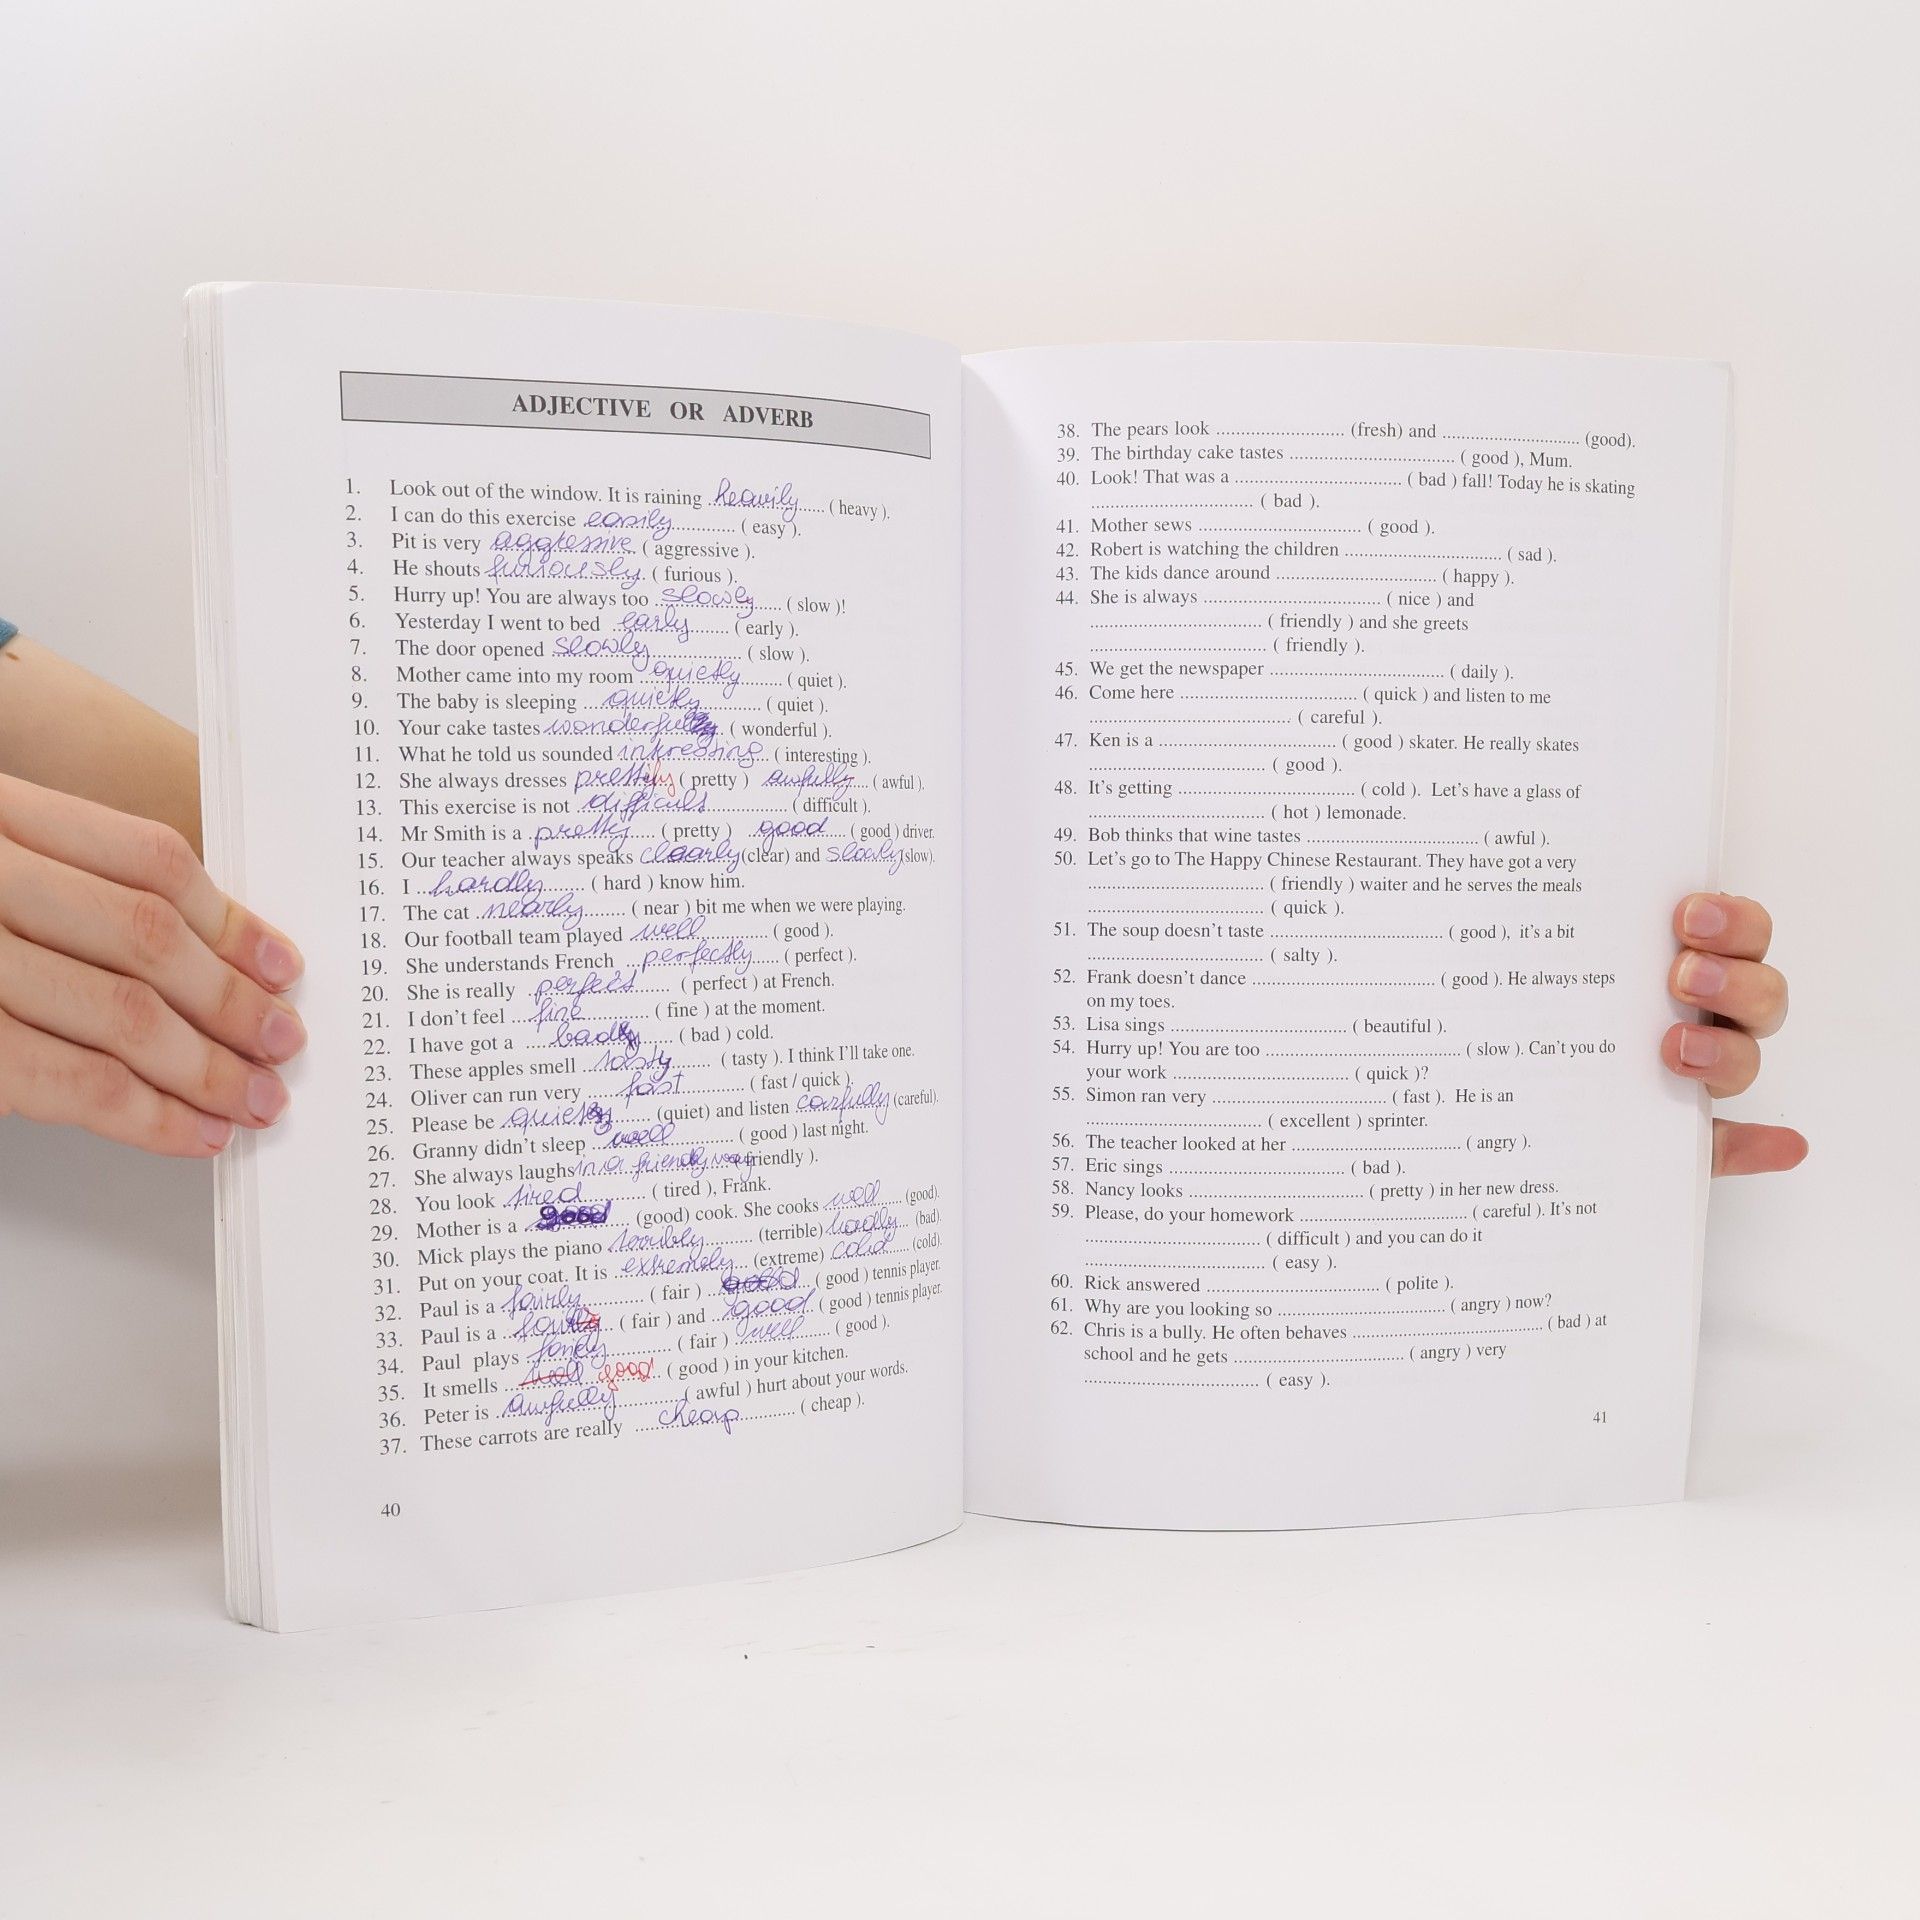 ADJECTIVE OR ADVERB
1. Look out of the window. It is raining heavily ( heavy ).
2. I can do this exercise easily ( easy ).
3. Pit is very aggressive ( aggressive ).
4. He shouts furiously ( furious ).
5. Hurry up! You are always too slowly ( slow )!
6. Yesterday I went to bed early ( early ).
7. The door opened slowly ( slow ).
8. Mother came into my room quietly ( quiet ).
9. The baby is sleeping quietly ( quiet ).
10. Your cake tastes wonderful ( wonderful ).
11. What he told us sounded interesting ( interesting ).
12. She always dresses prettily ( pretty ) awfully ( awful ).
13. This exercise is not difficult ( difficult ).
14. Mr Smith is a pretty ( pretty ) good ( good ) driver.
15. Our teacher always speaks clearly (clear) and slowly (slow).
16. I hardly ( hard ) know him.
17. The cat nearly ( near ) bit me when we were playing.
18. Our football team played well ( good ).
19. She understands French perfectly ( perfect ).
20. She is really perfect ( perfect ) at French.
21. I don't feel fine ( fine ) at the moment.
22. I have got a bad ( bad ) cold.
23. These apples smell tasty ( tasty ). I think I'll take one.
24. Oliver can run very fast ( fast / quick ).
25. Please be quiet (quiet) and listen carfully (careful).
26. Granny didn't sleep well ( good ) last night.
27. She always laughs in a friendly way friendly ).
28. You look tired ( tired ), Frank.
29. Mother is a good (good) cook. She cooks well (good).
30. Mick plays the piano terribly (terrible) badly (bad).
31. Put on your coat. It is extremely (extreme) cold (cold).
32. Paul is a fairly ( fair ) good ( good ) tennis player.
33. Paul is a fair ( fair ) and good ( good ) tennis player.
34. Paul plays fairly ( fair ) well ( good ).
35. It smells well good ( good ) in your kitchen.
36. Peter is awfully ( awful ) hurt about your words.
37. These carrots are really cheap ( cheap ).
40
38. The pears look (fresh) and (good).
39. The birthday cake tastes ( good ), Mum.
40. Look! That was a ( bad ) fall! Today he is skating
( bad ).
41. Mother sews ( good ).
42. Robert is watching the children ( sad ).
43. The kids dance around ( happy ).
44. She is always ( nice ) and
( friendly ) and she greets
( friendly ).
45. We get the newspaper ( daily ).
46. Come here ( quick ) and listen to me
( careful ).
47. Ken is a ( good ) skater. He really skates
( good ).
48. It's getting ( cold ). Let's have a glass of
( hot ) lemonade.
49. Bob thinks that wine tastes ( awful ).
50. Let's go to The Happy Chinese Restaurant. They have got a very
( friendly ) waiter and he serves the meals
( quick ).
51. The soup doesn't taste ( good ), it's a bit
( salty ).
52. Frank doesn't dance ( good ). He always steps
on my toes.
53. Lisa sings ( beautiful ).
54. Hurry up! You are too ( slow ). Can't you do
your work ( quick )?
55. Simon ran very ( fast ). He is an
( excellent ) sprinter.
56. The teacher looked at her ( angry ).
57. Eric sings ( bad ).
58. Nancy looks ( pretty ) in her new dress.
59. Please, do your homework ( careful ). It's not
( difficult ) and you can do it
( easy ).
60. Rick answered ( polite ).
61. Why are you looking so ( angry ) now?
62. Chris is a bully. He often behaves ( bad ) at
school and he gets ( angry ) very
( easy ).
41